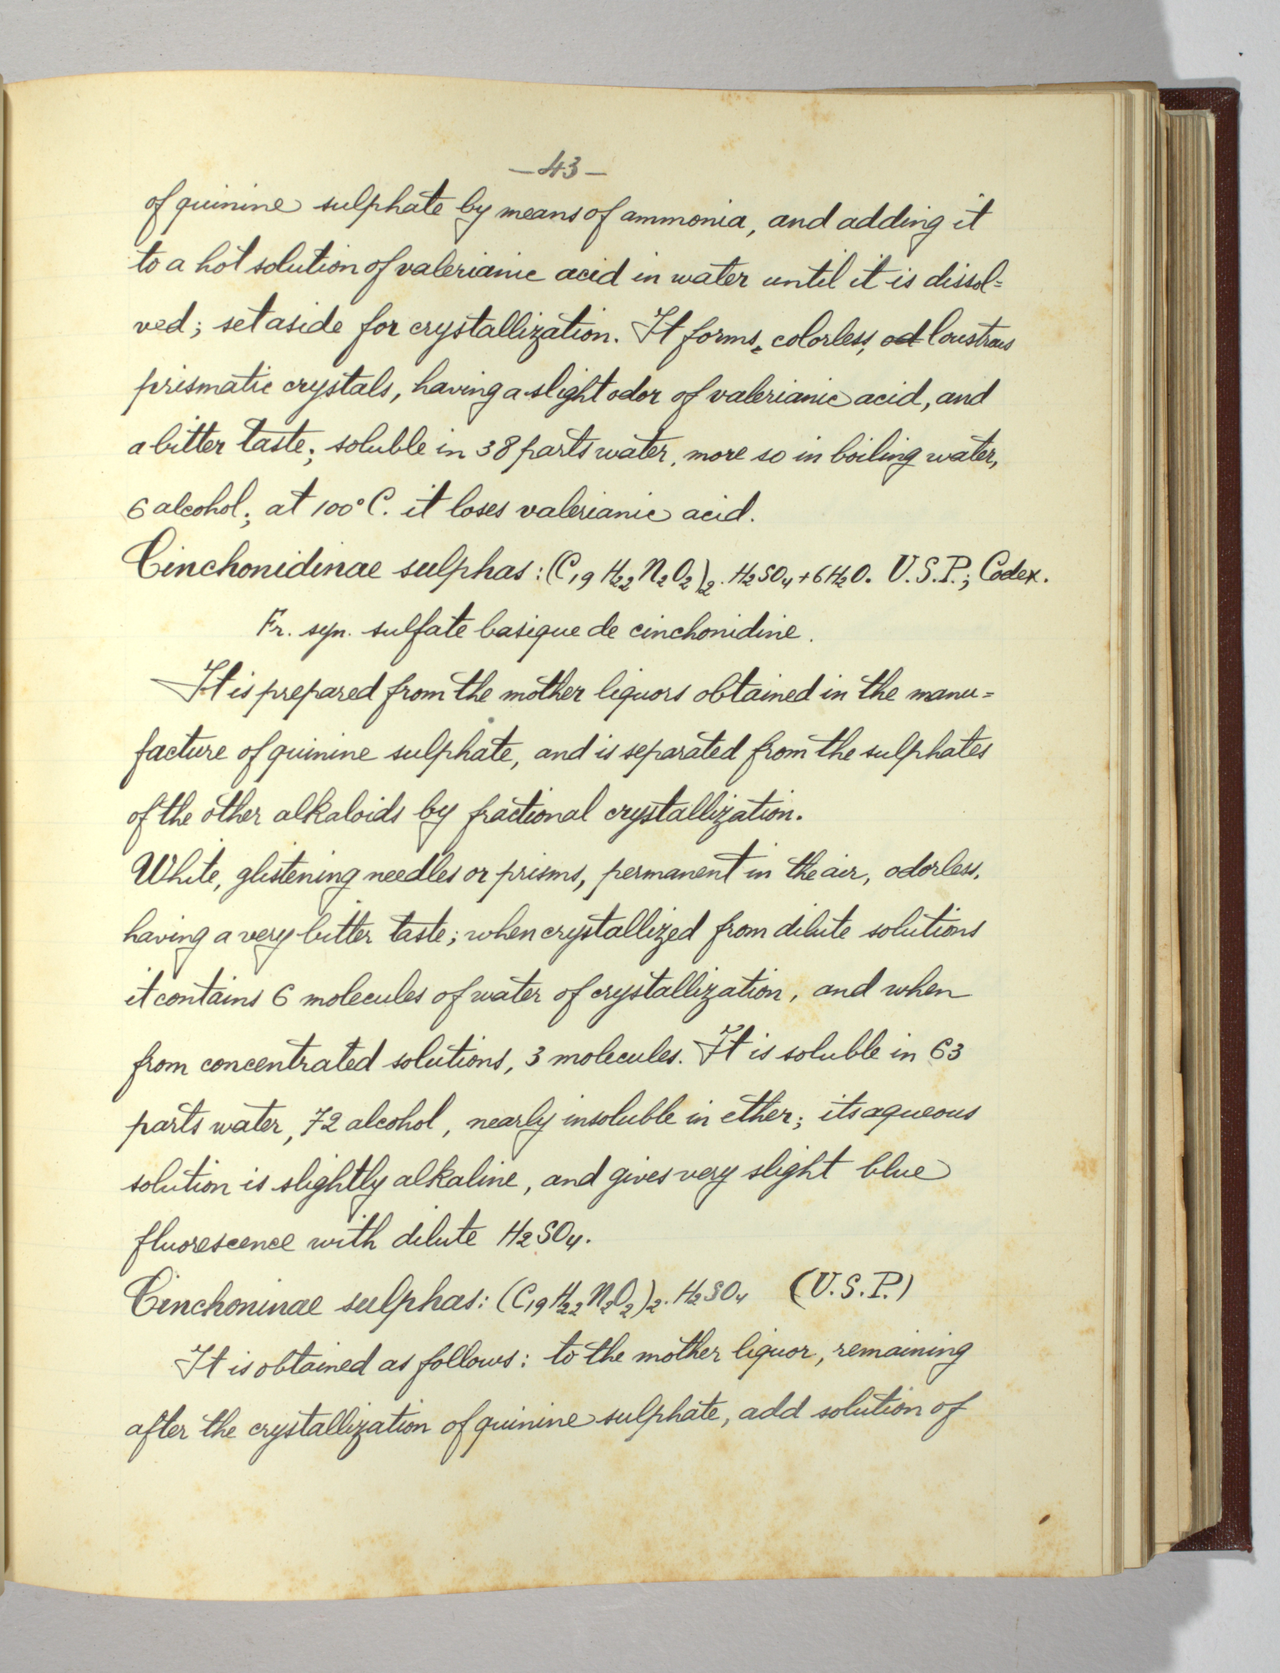 —43—
of quinine sulphate by means of ammonia, and adding it
to a hot solution of valerianic acid in water until it is dissol=
ved; set aside for crystallization. It forms, colorless, od loustrous
prismatic crystals, having a slight odor of valerianic acid, and
a bitter taste; soluble in 38 parts water, more so in boiling water,
6 alcohol; at 100° C. it loses valerianic acid.
Cinchonidinae sulphas: (C₁₉H₂₂N₂O₂)₂.H₂SO₄+6H₂O. U.S.P.; Codex.
Fr. syn. sulfate basique de cinchonidine.
It is prepared from the mother liquors obtained in the manu=
facture of quinine sulphate, and is separated from the sulphates
of the other alkaloids by fractional crystallization.
White, glistening needles or prisms, permanent in the air, odorless,
having a very bitter taste; when crystallized from dilute solutions
it contains 6 molecules of water of crystallization, and when
from concentrated solutions, 3 molecules. It is soluble in 63
parts water, 72 alcohol, nearly insoluble in ether; its aqueous
solution is slightly alkaline, and gives very slight blue
fluorescence with dilute H₂SO₄.
Cinchoninae sulphas: (C₁₉H₂₂N₂O₂)₂.H₂SO₄ (U.S.P.)
It is obtained as follows: to the mother liquor, remaining
after the crystallization of quinine sulphate, add solution of